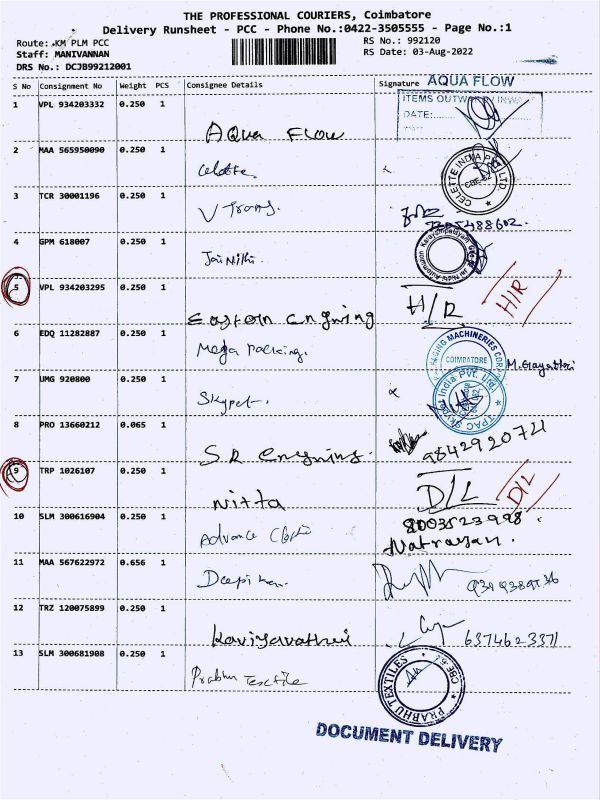 THE PROFESSIONAL COURIERS, Coimbatore
Delivery Runsheet - PCC - Phone No.:0422-3505555 - Page No.:1
Route: KM PLM PCC
RS No.: 992120
Staff: MANIVANNAN
RS Date: 03-Aug-2022
DRS No.: DCJB99212001
S No Consignment No Weight PCS Consignee Details Signature AQUA FLOW
ITEMS OUTWARD/INWARD
DATE:
1 VPL 934203332 0.250 1 AQua FLOW
2 MAA 565950090 0.250 1 CELETTE INDIA PVT LTD
3 TCR 30001196 0.250 1 V Trans.
4 GPM 618007 0.250 1 Jai Nithi.
5 VPL 934203295 0.250 1 Eastern Engning H/R H/R
6 EDQ 11282887 0.250 1 Mega Packing. COIMBATORE M. Gayathri
7 UMG 920800 0.250 1 Skypet. TPAC Skypet India Pvt. Ltd.
8 PRO 13660212 0.065 1 S.R Engning. 9842920721
9 TRP 1026107 0.250 1 Nitta D/L D/L
10 SLM 300616904 0.250 1 Advance 8003523998. Natrayan.
11 MAA 567622972 0.656 1
12 TRZ 120075899 0.250 1 6374623371
13 SLM 300681908 0.250 1 Prabhu Textile PRABHU TEXTILES CBE
DOCUMENT DELIVERY